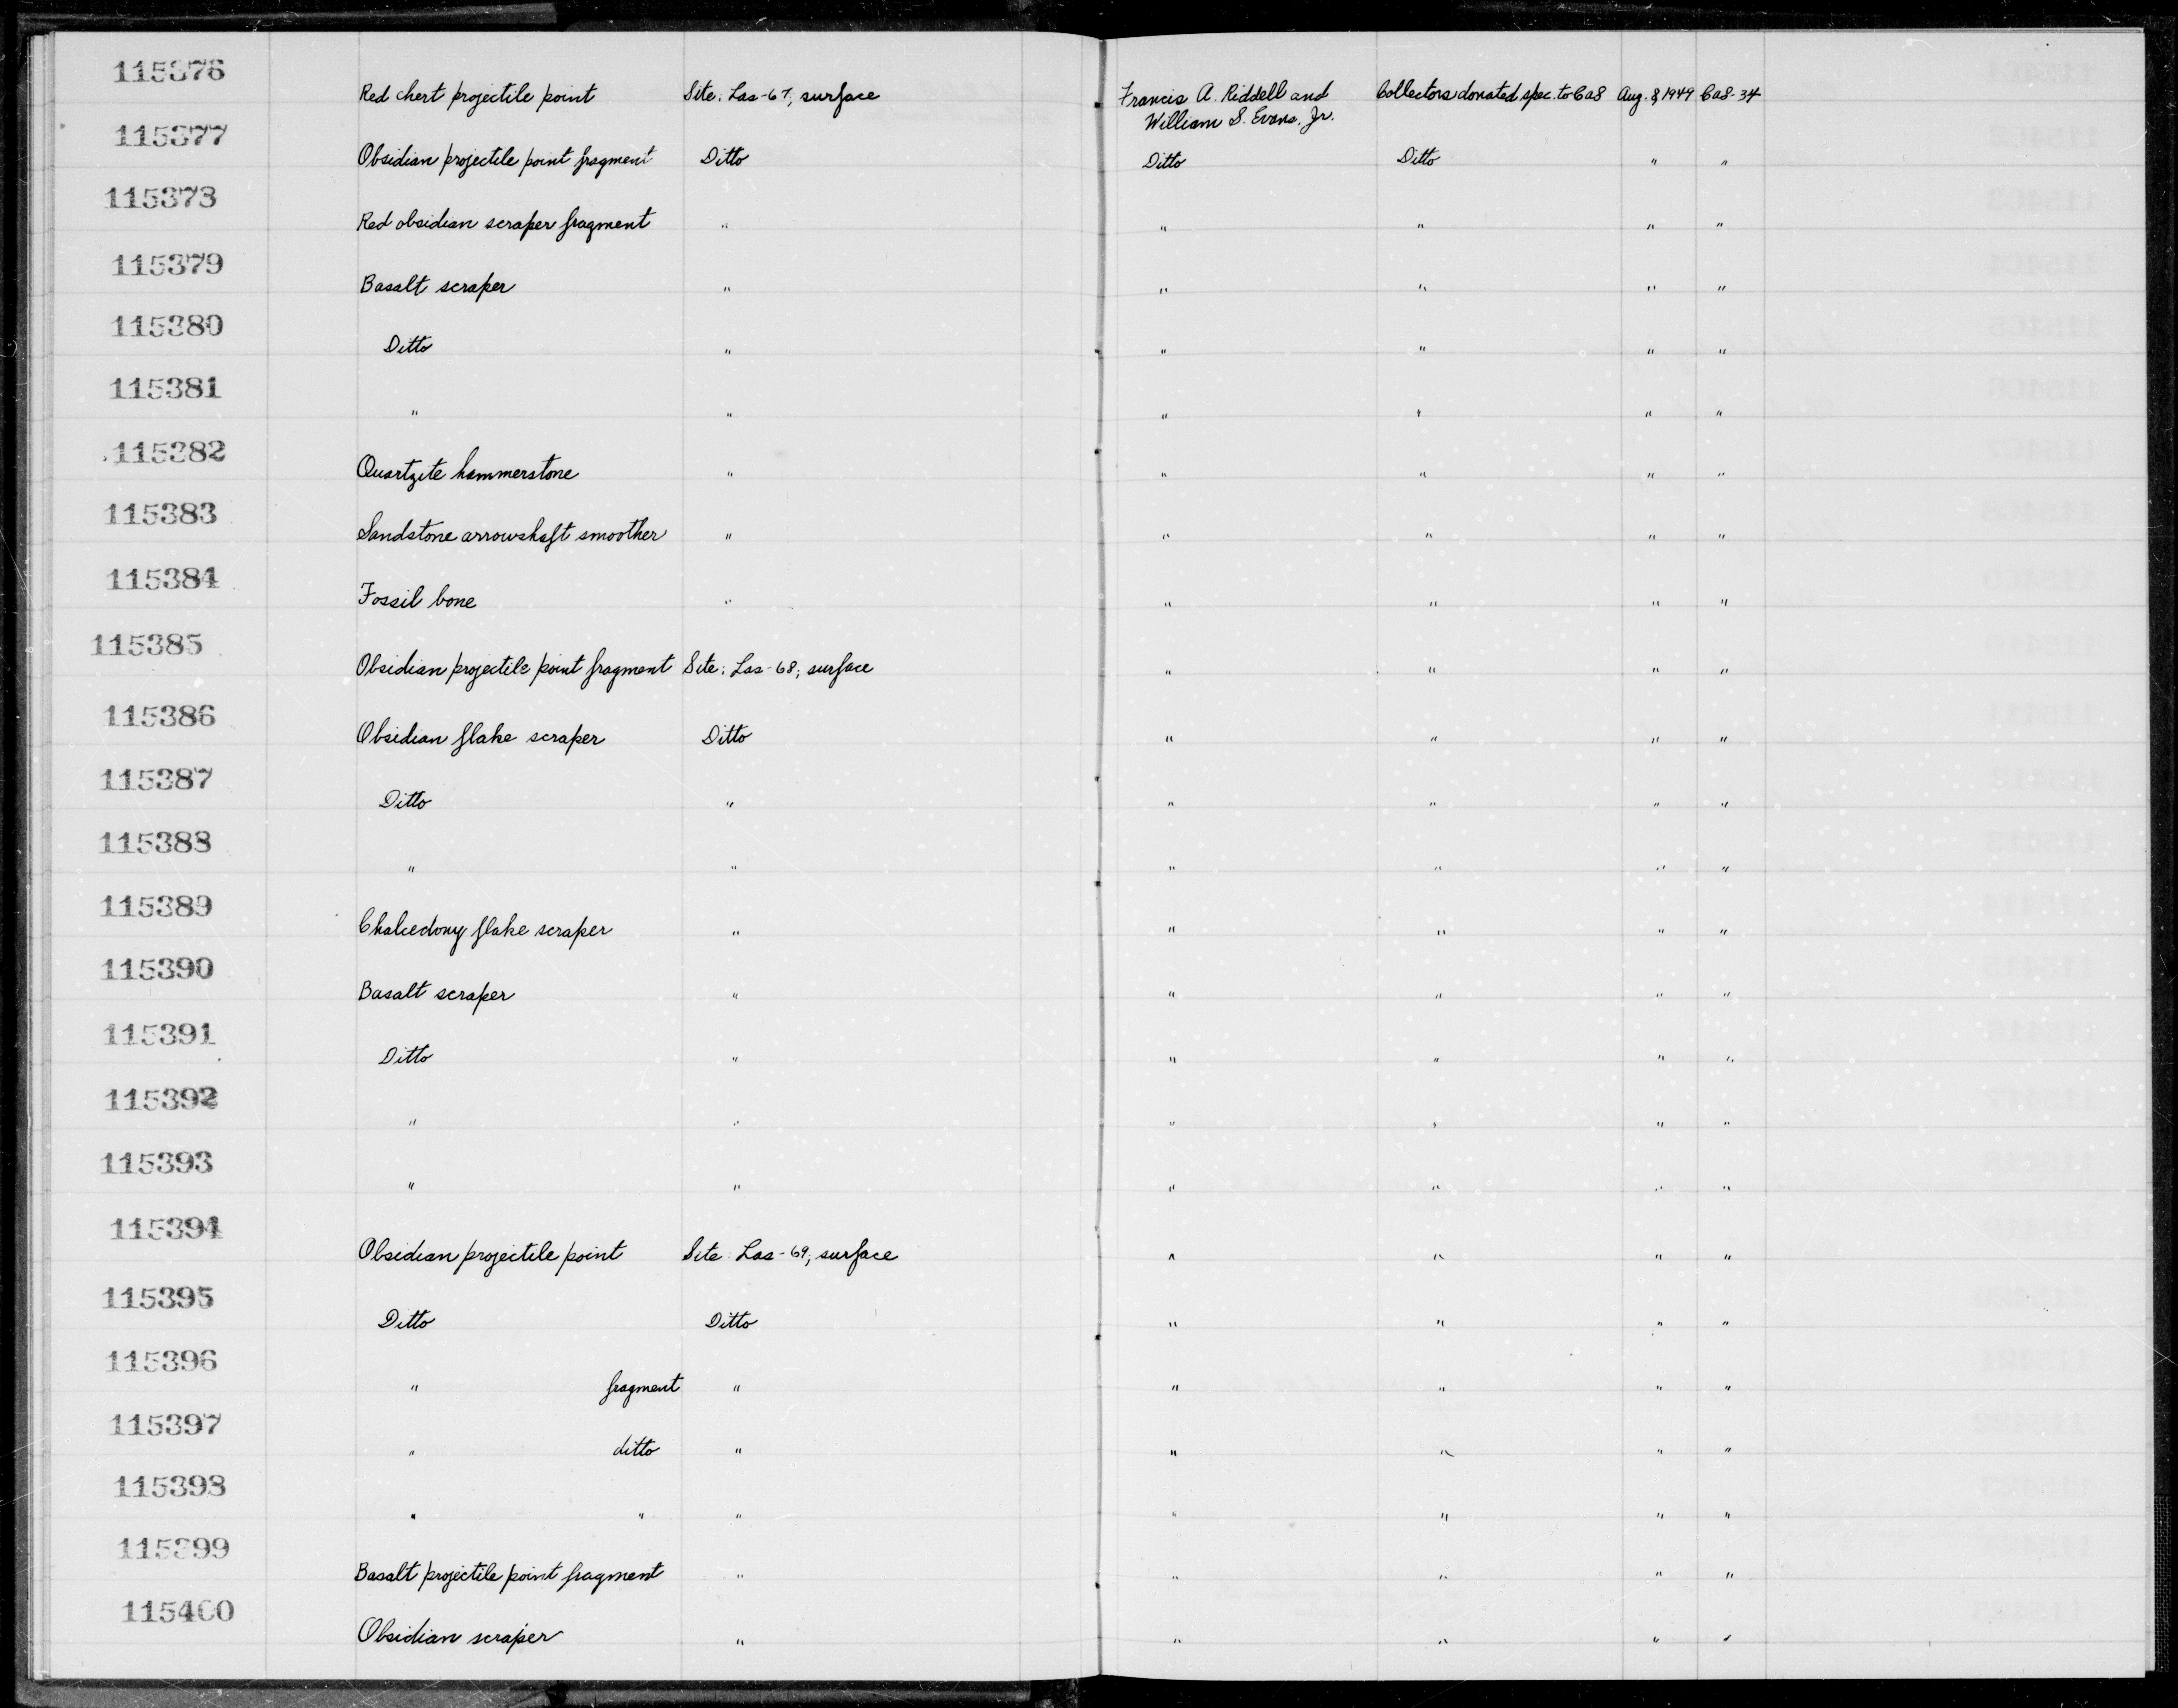 115376
Red chert projectile point Site: Las-67, surface Francis A. Riddell and Collectors donated spec. to CAS Aug. 8, 1949 CAS-34
William S. Evans, Jr.
115377
Obsidian projectile point fragment Ditto Ditto Ditto " "
115378
Red obsidian scraper fragment " " " " "
115379
Basalt scraper " " " " "
115380
Ditto " " " " "
115381
" " " " " "
115382
Quartzite hammerstone " " " " "
115383
Sandstone arrowshaft smoother " " " " "
115384
Fossil bone " " " " "
115385
Obsidian projectile point fragment Site: Las-68; surface " " " "
115386
Obsidian flake scraper Ditto " " " "
115387
Ditto " " " " "
115388
" " " " " "
115389
Chalcedony flake scraper " " " " "
115390
Basalt scraper " " " " "
115391
Ditto " " " " "
115392
" " " " " "
115393
" " " " " "
115394
Obsidian projectile point Site: Las-69; surface " " " "
115395
Ditto Ditto " " " "
115396
" fragment " " " " "
115397
" ditto " " " " "
115398
" " " " " " "
115399
Basalt projectile point fragment " " " " "
115400
Obsidian scraper " " " " "